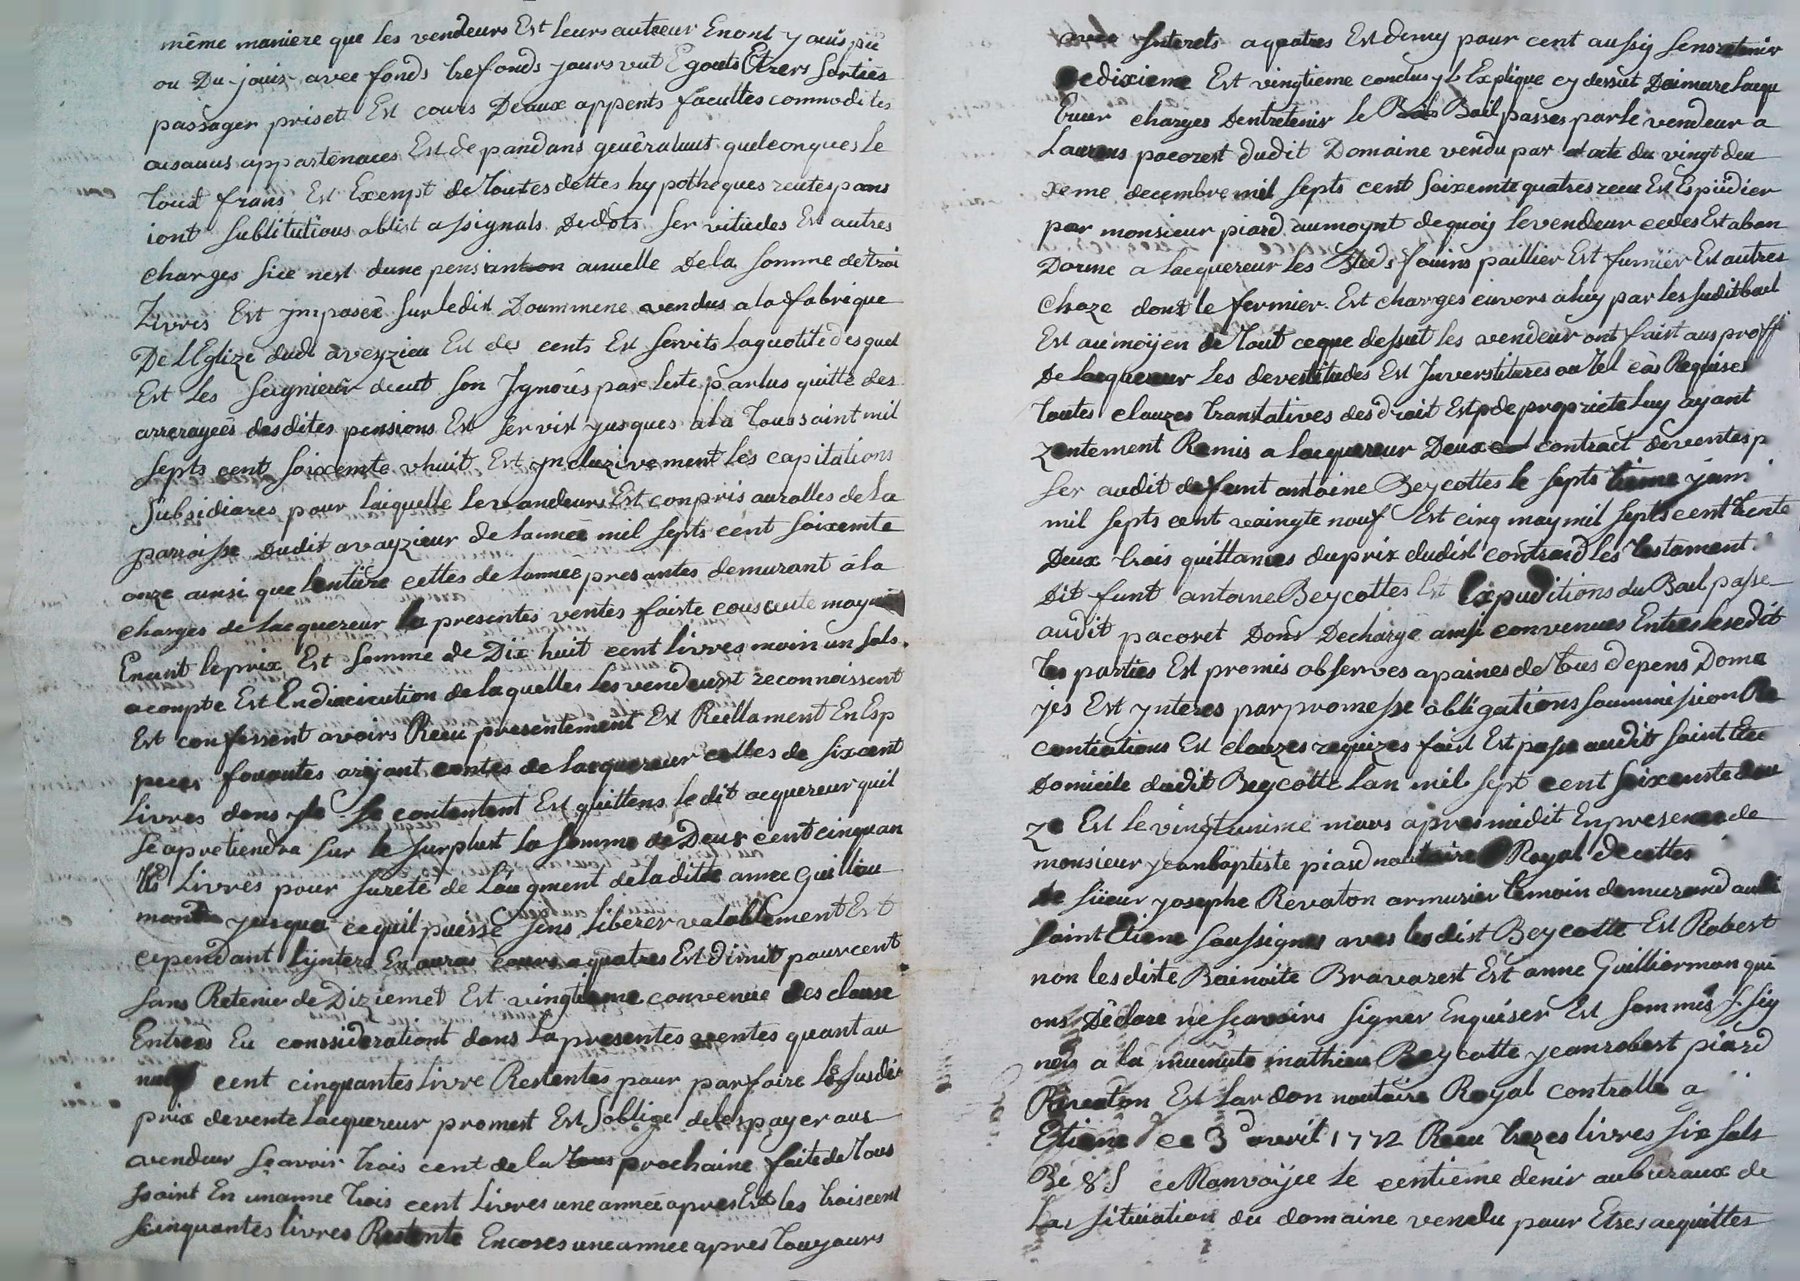 même maniere que les vendeurs Est leurs autreur Enont y ouis pü
ou Du jouir avec fonds trefonds jours vut Egouts Etrers sorties
passager priset Est cours Deaux appents facultes commodites
aisanus appartenances Est depandans generalmt quelconques le
tout frans Est Exempt de toutes dettes hypotheques rentes pans
iont sublitutions oblist assignals Dedots Servitudes Est autres
charges sice nest dune pensiantion anuelle Dela somme detroi
Livris Est ymposéé sur ledit Doummene vendus a la fabrique
De lEglize dudt aveyzieu Est des cents Est servits laquotite desquel
Est les seignieur dieut son Jgnorés par leste parlus quitte des
arrerageés desdites pensions Est servist jusques à la Toussaint mil
septs cent soixemte vhuit Est ynclusivement les capitations
subsidiares pour laiquelle levandeurs Est conpris auralles de la
parroisse Dudit avayzieur de lanneé mil septs cent soixemte
onze ainsi que lentiere cettes de lanneé presantes demurant à la
charges de lacquereur la presentes ventes faiste
Enant leprix Est somme de Dix huit cent livres moin un sols
acompte Est Endiminution delaquelles les vendeurst reconnoissent
Est confessent avoirs Reeu presentement Est Reellament En Esp
peces sonantes arjant contes de lacquereur celles de sixcent
livres dons yls se contentent Est quittens le dit acquereur quil
se apretiendra sur le surplust la somme de Deux cent cinquan
tte Livres pour sureté de laugment deladitte anne Guilliou
mande jusqua cequil puisse sens liberer valablement Est
cependant lynterest En auras cours aquatres Est dimit pourcent
sans Retenir de Diziemet Est vingtieme convenue des clause
Entrees Eu conssiderationt dans la presentes ventes quant au
neuf cent cinquantes livre Restentes pour parfaire le susdit
prix devente lacquereur promest Est soblige deles payer aus
avendeur scavoir trois cent de la prochaine faite de tous
ssaint En unanne trois cent livres une anneé apres Est les troiscent
scinquantes livres Restente Encores uneannee apres touyours
avec Jnterets aquatres Est demy pour cent aussy sens retenir
de dixieme Est vingtieme conclus yl Explique cy dessut Daimare lacqu
Ereur charges Dentretenir le Bail passés par le vendeur a
Laurens pacorest dudit Domaine vendu par acte du vingt deu
xeme decembre mil septs cent soixemte quatres receu Est Espüdier
par monsieur piard aumoynt dequoy levendeur cedes Est aban
Donne a lacquereur les Bleds foiins paillier Est fumiér Est autres
choze dont le fermier Est charges envers à luy par les suditbail
Est au moijen de tout ceque dessut les avendeur ont faist aus proffi
De lacquereur les devestitudes Est Jnverstitures au tel cas Requises
toutes clauzes translatives des droit Est de propriete luy ayant
zentement Remis a lacquereur Deux contract deventes p
ser audit defunt antoine Beycottes le septs tieme jain
mil septs cent vaingte nouf Est cinq may mil septs cent trente
Deux trois quittances duprix dudist contract les testament
Dit funt antoine Beycottes Est Expuditions du Bail passe
audit pacoret Dont Decharge ainsi convenues Entres lesdit
tes parties Est promis observes apaines de tous depens Doma
jes Est ynteres par promesse obligations soummission Re
contiations Est clauzes requizes fait Est passe audit saint Etie
Domicile dudit Beycotte lan mil sept cent soixemte dou
ze Est levingtunime mars apres midit En presence de
monsieur jean baptiste piard noutaire Royal decettes
de sieur Josephe Revaton armurier temoin demurand audi
saint Etiene soussignes aves lesdist Beycotte Est Robert
non lesdiste Bainoite Bravarest Est anne Guillierman qui
ons Déclare ne scavoirs signer Enquiser Est sommés ssig
nés a la munute mathieu Beycotte jeanrobert piard
Ravaton Est lardon noutaire Royal controlle a
Etiene ce 3d avril 1772 Reeu trezes livres six sols
Re 8 s ce Ranvoijee le centieme denir aubüraux de
Las situation du domaine vendu pour Etres acquittes